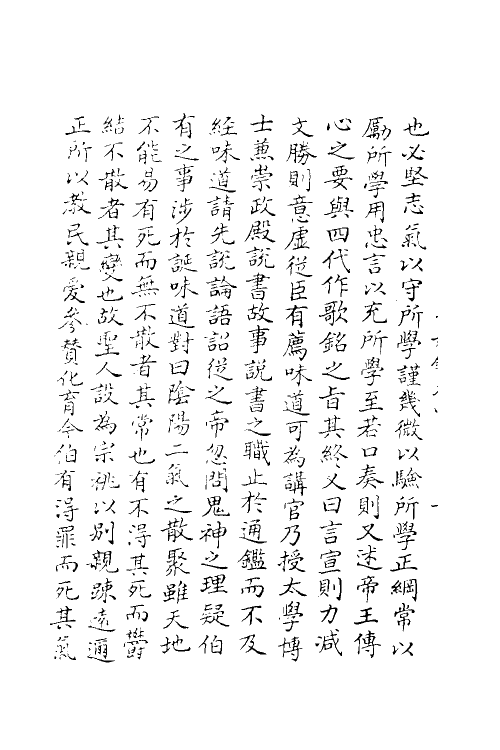 也必堅志氣以守所學謹幾微以驗所學正綱常以
勵所學用忠言以充所學至若口奏則又述帝王傳
心之要與四代作歌銘之旨其終又曰言宣則力減
文勝則意虛従臣有薦味道可為講官乃授太學博
士兼崇政殿説書故事説書之職止於通鑑而不及
經味道請先說論語詔從之帝忽問鬼神之理疑伯
有之事涉於誕味道對曰陰陽二氣之散聚雖天地
不能易有死而無不散者其常也有不得其死而鬱
結不散者其變也故聖人設為宗祧以别親踈逺邇
正所以教民親愛參贊化育今伯有得罪而死其氣